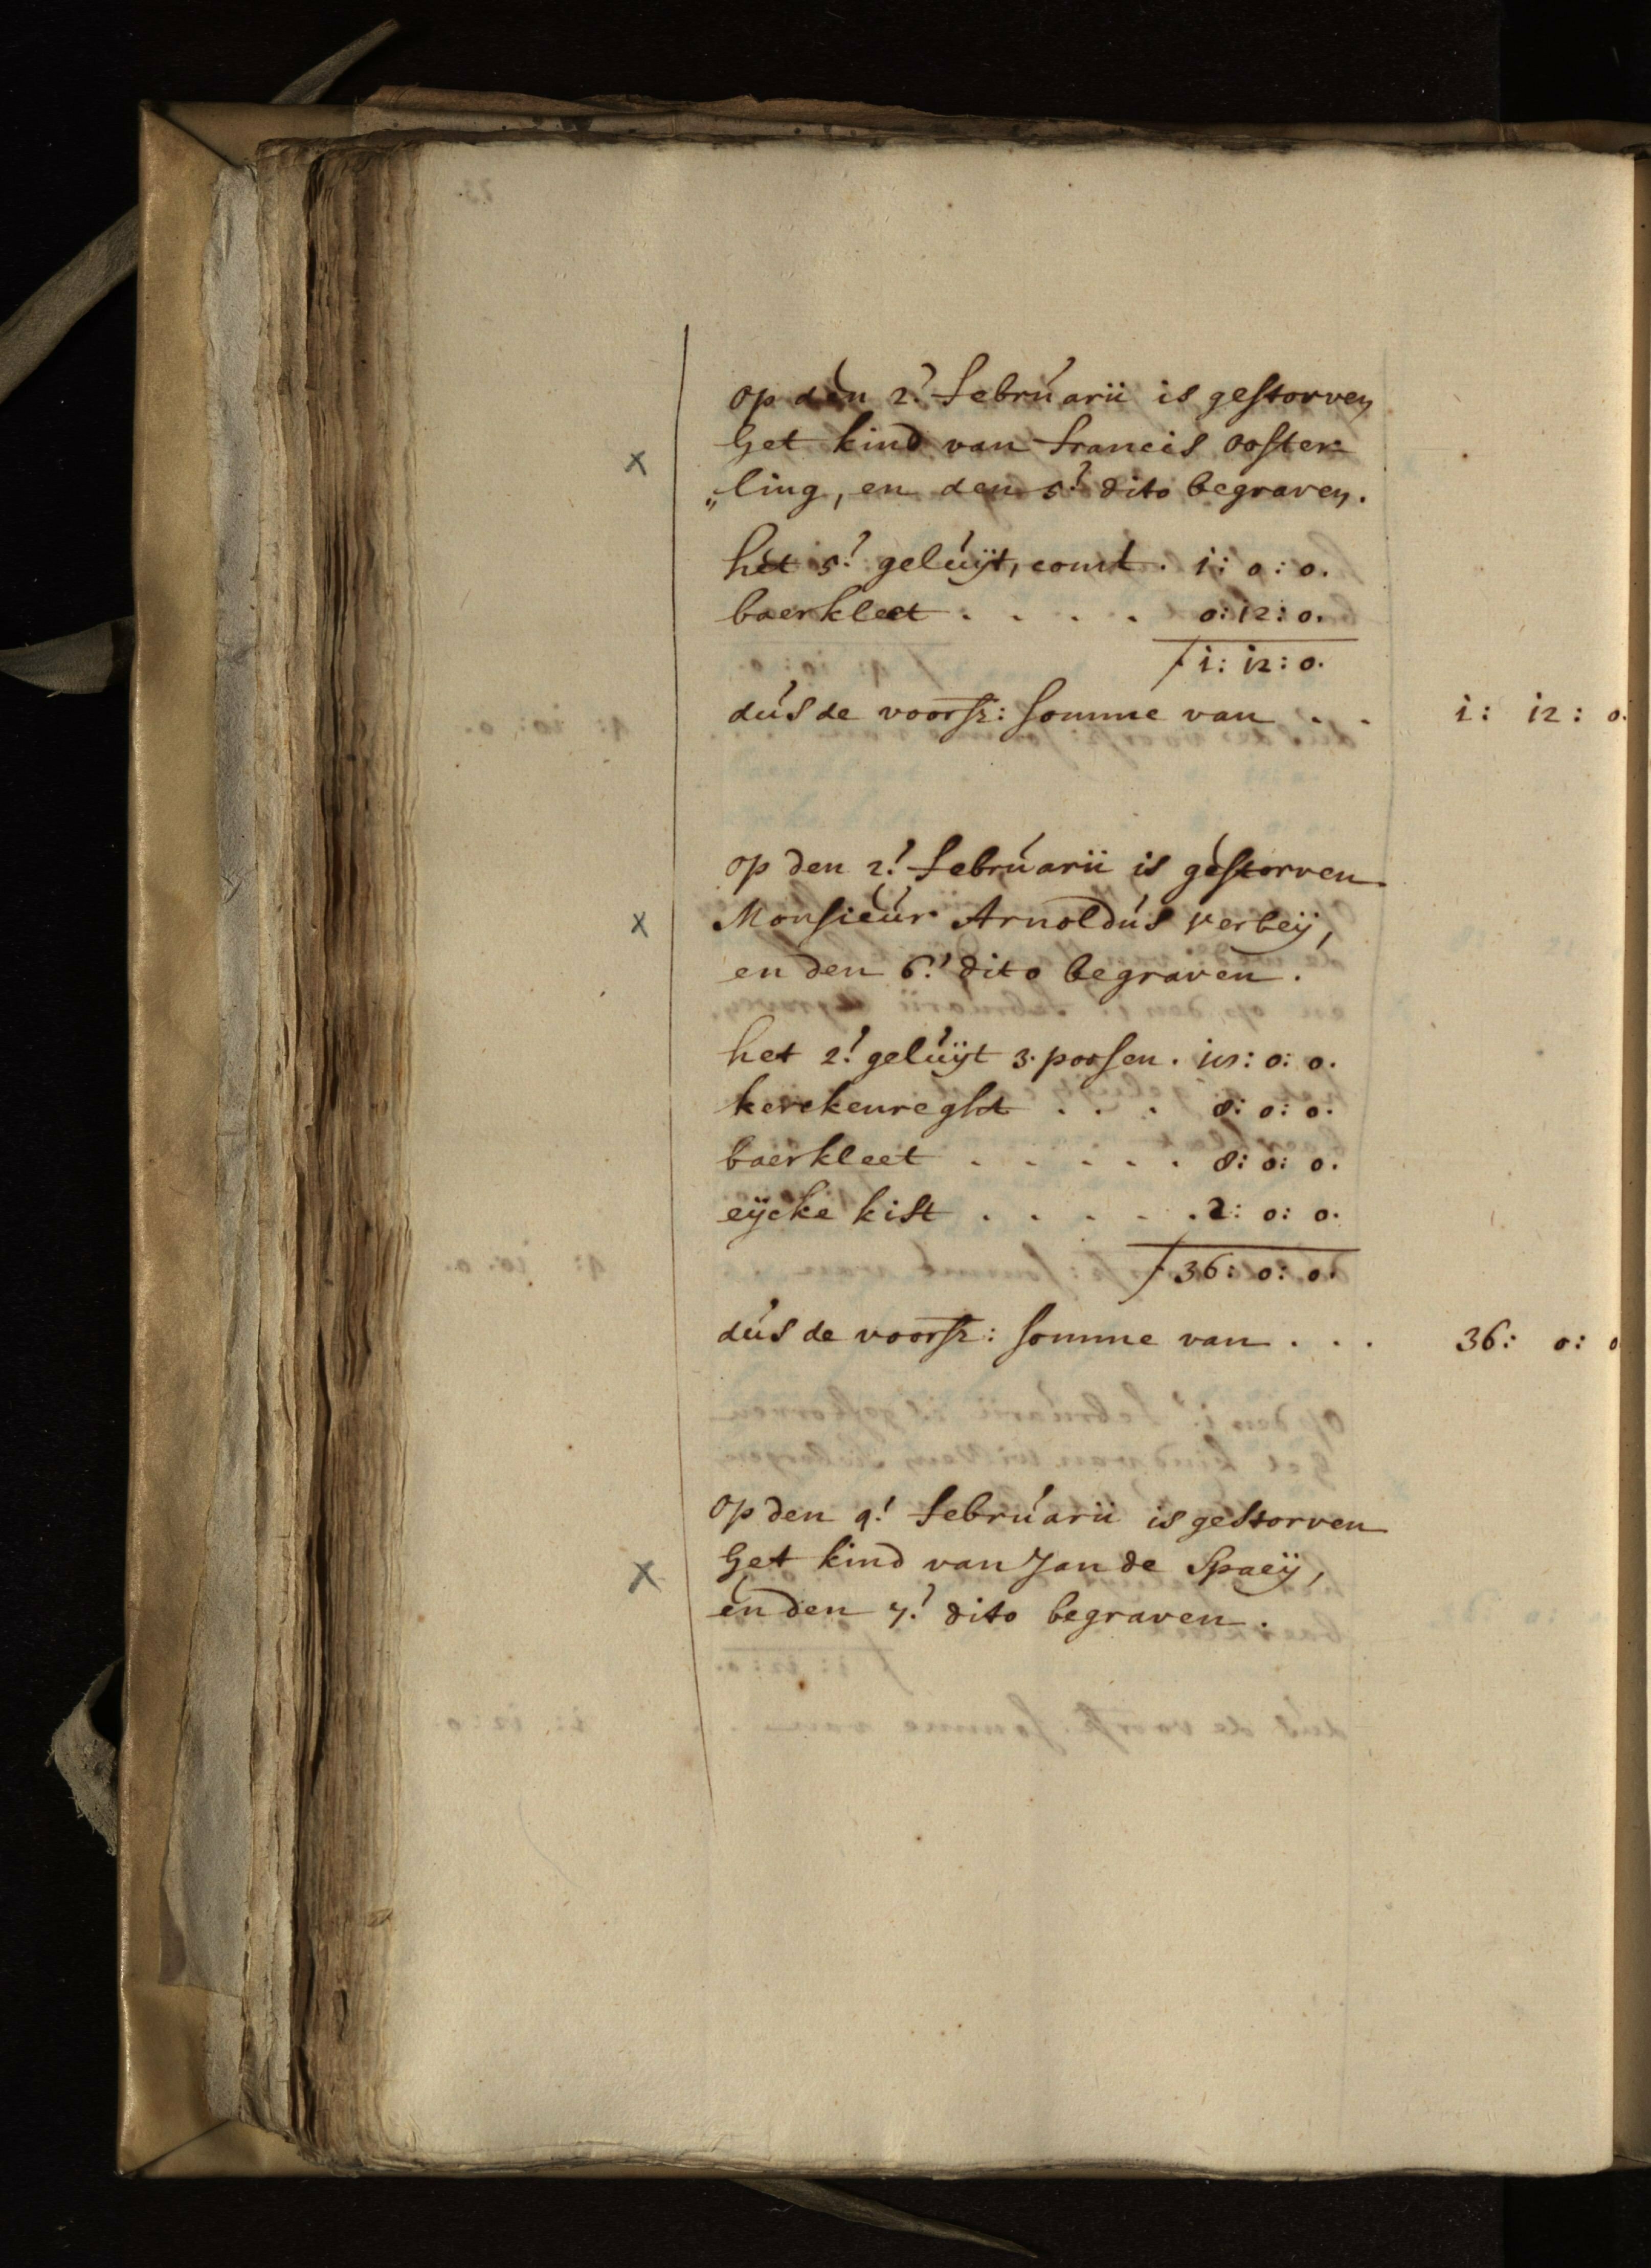 op den 2.e februarii is gestorven
het kind van francis ooster-
„ling, en den 5.e dito begraven.
het 5.e geluijt, comt . 1: 0: 0.
baerkleet . . . . 0: 12: 0.
f 1: 12: 0.
dus de voorsz: somme van . . 1: 12: 0.
op den 2.e februarii is gestorven
Monsieur Arnoldus Verbeij,
en den 6.e dito begraven.
het 2.e geluijt 3. poosen . 18: 0: 0.
kerckenreght . . . 8: 0: 0.
baerkleet . . . . . 8: 0: 0.
eijcke kist . . . . . 2: 0: 0.
f 36: 0: 0.
dus de voorsz: somme van . . . 36: 0: 0
op den 4.e februarii is gestorven
het kind van Jan de Spaeij,
en den 7.e dito begraven.